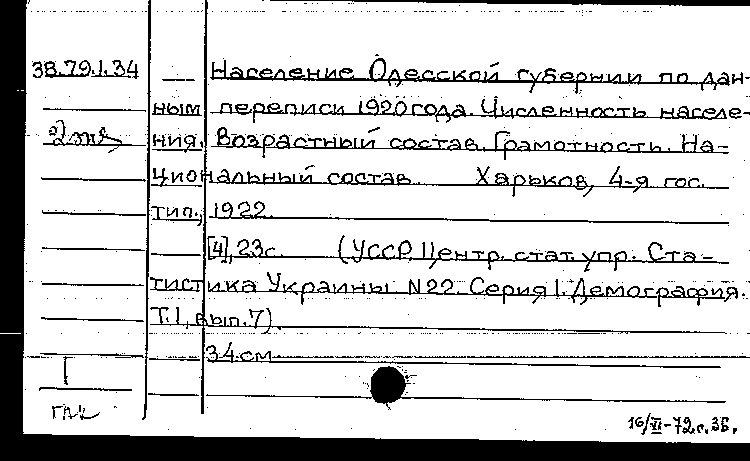 38.79.1.34 — Население Одесской губернии по дан-
ным переписи 1920 года. Численность населе-
2 экз ния. Возрастный состав. Грамотность. На-
циональный состав Харьков, 4-я гос.
тип., 1922.
[4], 23с. (УССР, Центр. стат. упр. Ста-
тистика Украины N22. Серия I. Демография.
Т.1, вып.7).
34 см
16/VI-72г. ЗБ.